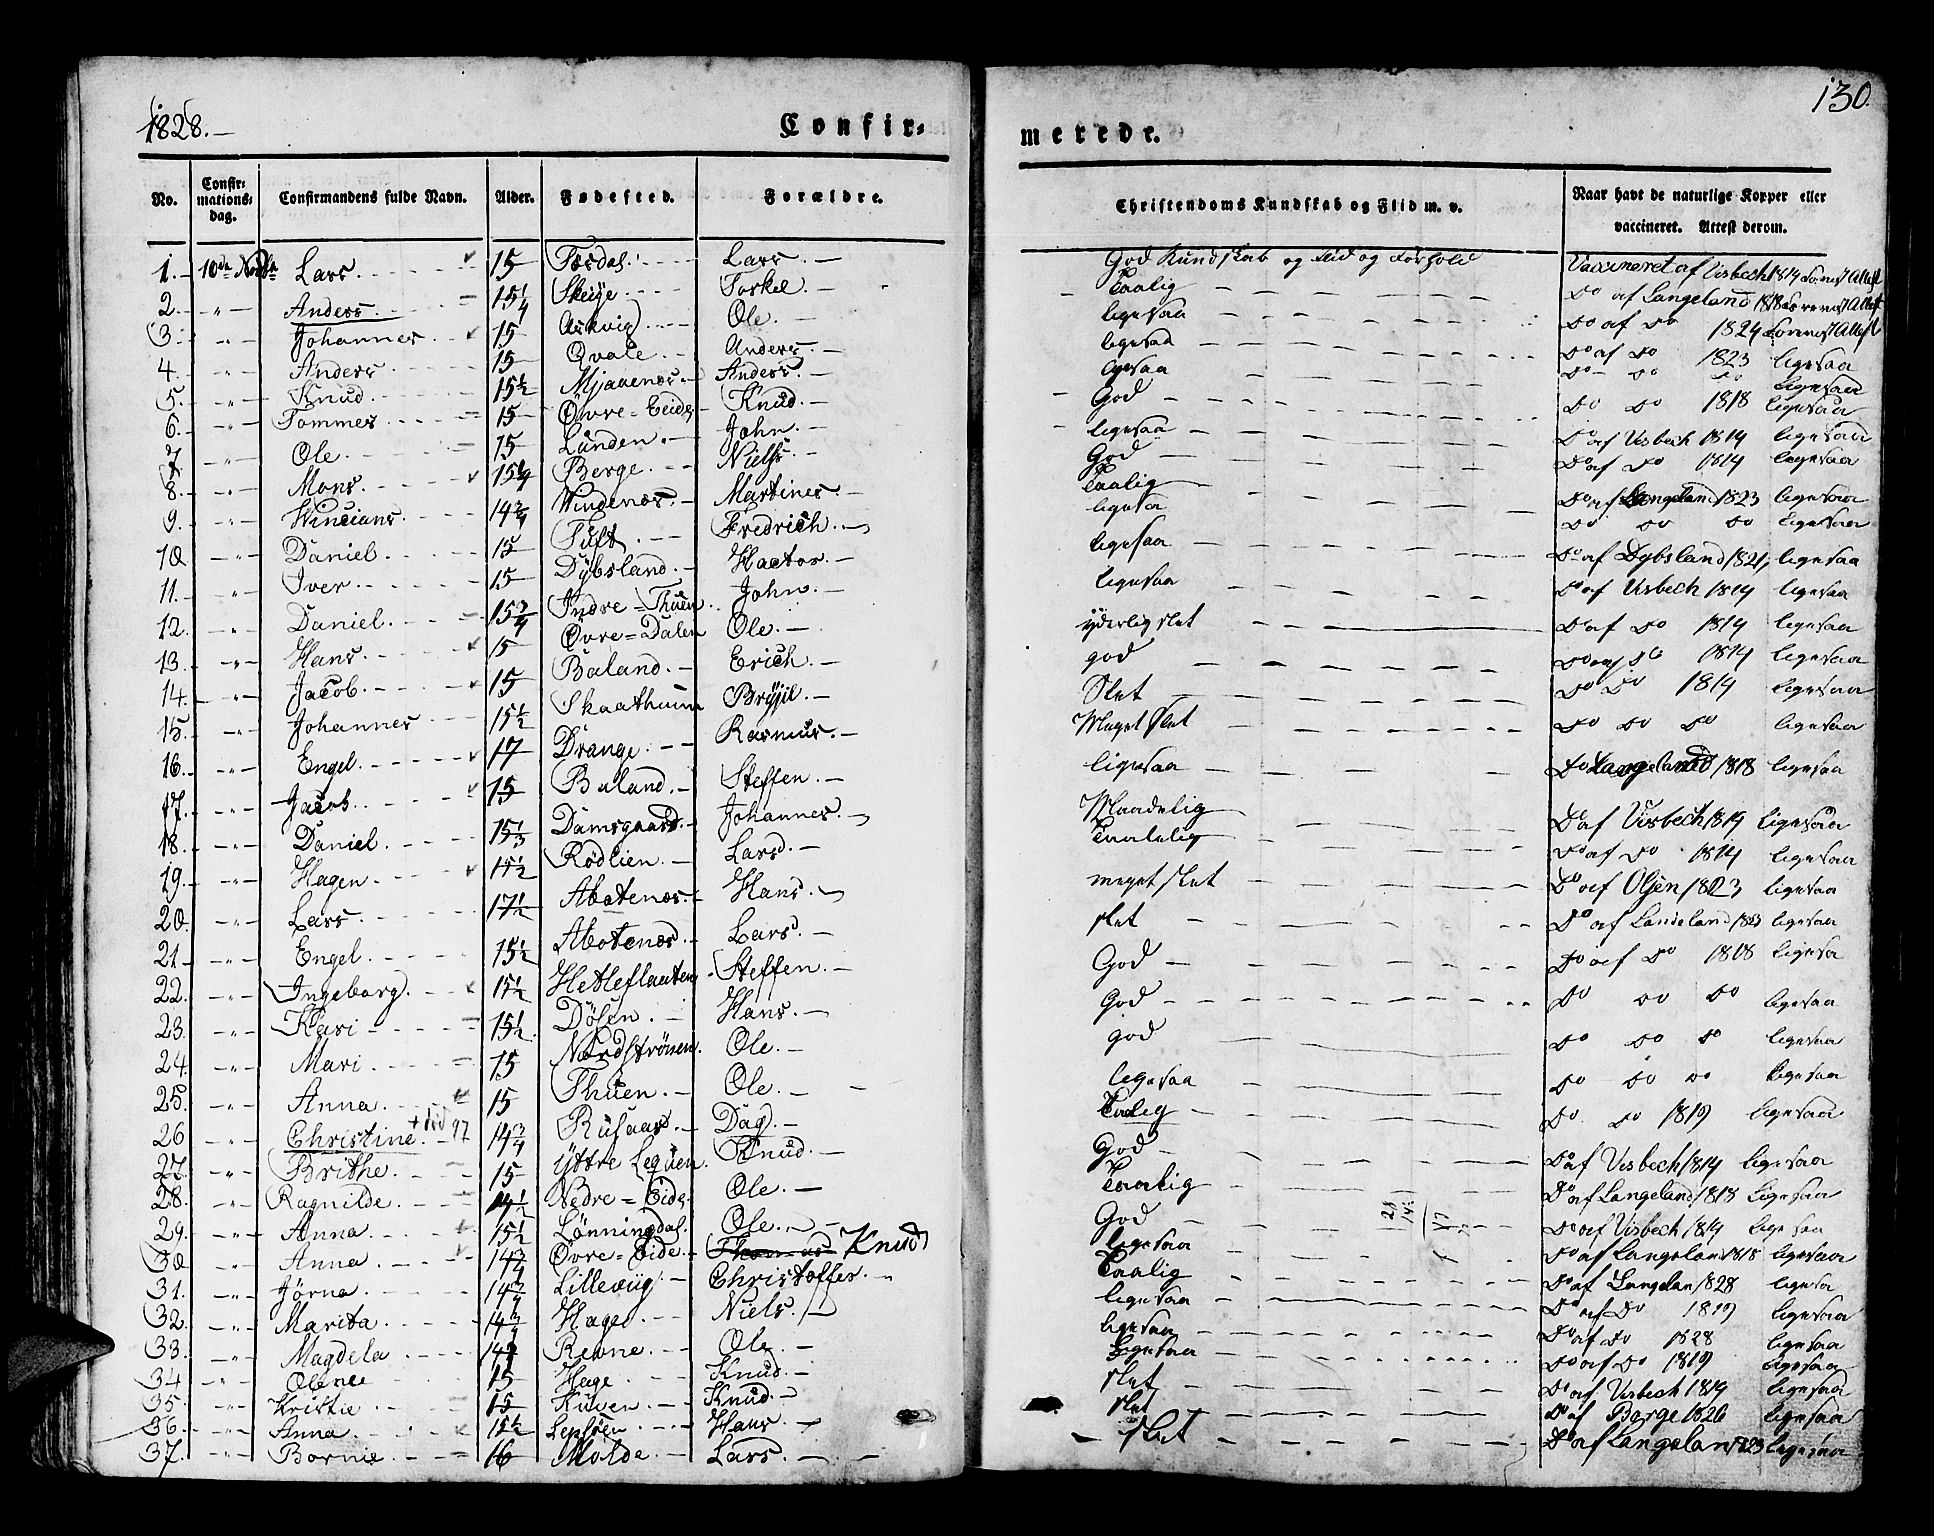 1828.
130.
Confir-
merede.
No.
Confir-
mations-
dag.
Confirmandens fulde Navn.
Alder.
Fødested.
Forældre.
Christendoms Kundskab og Flid m. v.
Naar havt de naturlige Kopper eller
vaccineret. Attest derom.
1. 10de Lars 15 Lars God Kundskab og Flid og Forhold Vaccineret af Visbech 1814
2. Anders 15 1/4 Skeije Torkel Taalig Do af Langeland 1818
3. Johannes 15 Askvig Ole ligesaa Do af Do 1824
4. Anders 15 Qvale Anders ligesaa Do af Do 1823 ligesaa
5. Knud 15 1/2 Mjaaenes Anders ligesaa Do Do Do ligesaa
6. Tommes 15 Övre=Eide Knud God Do Do 1818 ligesaa
7. Ole 15 Lunden John ligesaa Do af Visbech 1814 ligesaa
8. Mons 15 1/4 Berge Niels God Do af Do 1814 ligesaa
9. 14 3/4 Vindenes Martines Taalig Do af Langeland 1823 ligesaa
10. Daniel 15 Tuft Fredrich ligesaa Do Do Do ligesaa
11. Iver 15 Dybsland Hactor ligesaa Do af Dybsland 1821 ligesaa
12. Daniel 15 3/4 Indre=Thuen John ligesaa Do af Visbech 1814 ligesaa
13. Hans 15 Övre=Dalen Ole yderlig slet Do af Do 1814 ligesaa
14. Jacob 15 Baland Erich god Do af Do 1814 ligesaa
15. Johannes 15 1/2 Skaathuun Slet Do Do 1814 ligesaa
16. Engel 17 Drange Rasmus Meget Slet Do Do Do ligesaa
17. Jacob 15 Baland Steffen ligesaa Do Langeland 1818 ligesaa
18. Daniel 15 1/3 Damsgaard Johannes Maadelig Do af Visbech 1814 ligesaa
19. Hagen 15 1/2 Rödlien Lars Taalelig Do af Do 1814 ligesaa
20. Lars 17 1/2 Abotenæs Hans meget slet Do af 1823 ligesaa
21. Engel 15 1/2 Abotenæs Lars slet Do af Landeland 1823 ligesaa
22. Ingeborg 15 1/2 Hetleflaaten Steffen God Do af Do 1818 ligesaa
23. Kari 15 1/2 Dölen Hans God Do Do Do ligesaa
24. Mari 15 Nordströnen Ole god Do Do Do ligesaa
25. Anna 15 Thuen Ole ligesaa Do Do Do ligesaa
26 Christine + död 97 14 3/4 Rusaas Dag Taalig Do Do 1819 ligesaa
27. Brithe 15 Yttre Lequen Knud God Do af Visbech 1814 ligesaa
28. Ragnilde 14 1/2 Nedre=Eide Ole Taalig Do af Langeland 1818 ligesaa
29. Anna 15 1/2 Lönningdal Ole God Do af Visbech 1814 ligesaa
30 Anna 14 3/4 Övre=Eide Thomas Knud ligesaa Do af Langeland 1818 ligesaa
31. Jörna 14 3/4 Lillevüg Christoffer Taalig Do af Langelan 1828 ligesaa
32. Marita 14 3/4 Hage Niels ligesaa Do af Do 1819 ligesaa
33. Magdela Revne Ole ligesaa Do af Do 1828 ligesaa
34 Olene 15 Hage Knud ligesaa Do af Do 1819 ligesaa
35. Kristie 15 Kuven Knud slet Do af Visbech 1814 ligesaa
36. Anna 15 1/2 Lepsöen Hans slet Do af Berge 1826 ligesaa
37. Bornie 16 Molde Lars Slet Do af Langelan 1823 ligesaa